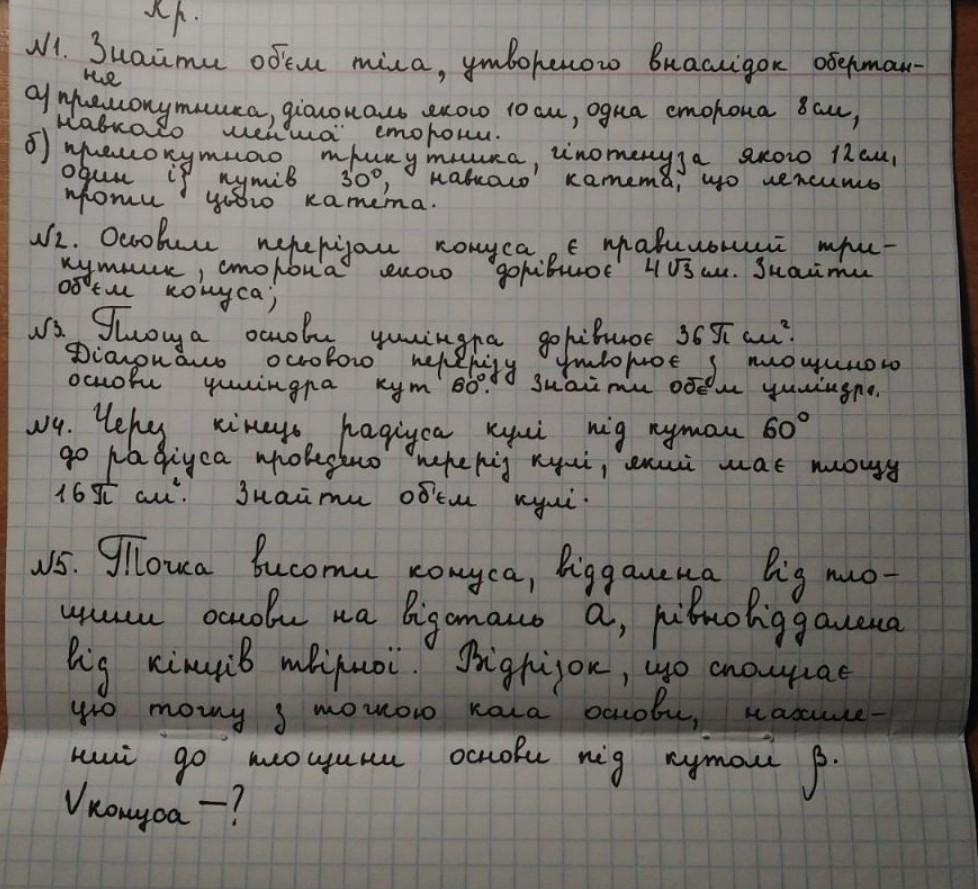 Кр.
№1. Знайти об'єм тіла, утвореного внаслідок обертан-
ня
а) прямокутника, діагональ якого 10 см, одна сторона 8 см,
навколо меншої сторони.
б) прямокутного трикутника, гіпотенуза якого 12 см,
один із кутів 30°, навколо катета, що лежить
проти цього катета.
№2. Осьовим перерізом конуса є правильний три-
кутник, сторона якого дорівнює 4√3 см. Знайти
об'єм конуса;
№3. Площа основи циліндра дорівнює 36π см².
Діагональ осьового перерізу утворює з площиною
основи циліндра кут 60°. Знайти об'єм циліндра.
№4. Через кінець радіуса кулі під кутом 60°
до радіуса проведено переріз кулі, який має площу
16π см². Знайти об'єм кулі.
№5. Точка висоти конуса, віддалена від пло-
щини основи на відстань a, рівновіддалена
від кінців твірної. Відрізок, що сполучає
цю точку з точкою кола основи, нахиле-
ний до площини основи під кутом β.
V конуса —?